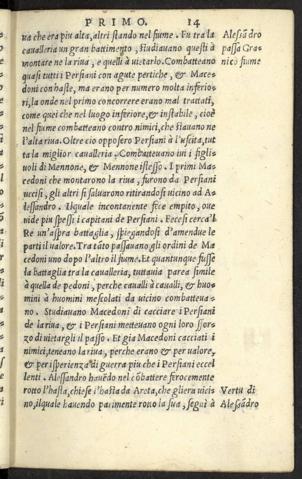 PRIMO. 14
ua che era piu alta, altri stando nel fiume. Fu tra la
caualleria un gran battimento, studiauano questi à
montare ne la riua, e quelli à uietarlo. Combatteano
quasi tutti i Persiani con agute pertiche, & Mace
doni con haste, ma erano per numero molto inferio-
ri, la onde nel primo concorrere erano mal trattati,
come quei che nel luogo inferiore, & instabile, cioè
nel fiume combatteano contro nimici, che stauano ne
l'alta riua. Oltre cio opposero Persiani à l'uscita, tut
ta la miglior caualleria. Combatteuano iui i figli-
uoli di Mennone, & Mennone istesso. I primi Ma-
cedoni che montorono la riua, furono da Persiani
uccisi, gli altri si saluarono ritirandosi uicino ad A-
lessandro. Ilquale incontanente fece empito, oue
uide piu spessi i capitani de Persiani. Fecesi cerca'l
Rè un'aspra battaglia, spiegandosi d'amendue le
parti il ualore. Tra tãto passauano gli ordini de Ma
cedoni uno dopo l'altro il fiume. Et quantunque fusse
la battaglia tra la caualleria, tuttauia parea simile
à quella de pedoni, perche caualli à caualli, & huo-
mini à huomini mescolati da uicino combatteua-
no. Studiauano Macedoni di cacciare i Persiani
de la riua, & i Persiani metteuano ogni loro sfor-
zo di uietargli il passo. Et gia Macedoni cacciati i
nimici, teneano la riua, perche erano & per ualore,
& per isperienza di guerra piu che i Persiani eccel
lenti. Alessandro hauẽdo nel cõbattere ferocemente
rotto l'hasta, chiese l'hasta da Areta, che gliera uici-
no, ilquale hauendo parimente rotto la sua, seguì à
Alesãdro
passa Gra-
nico fiume
Vertu di
Alesãdro